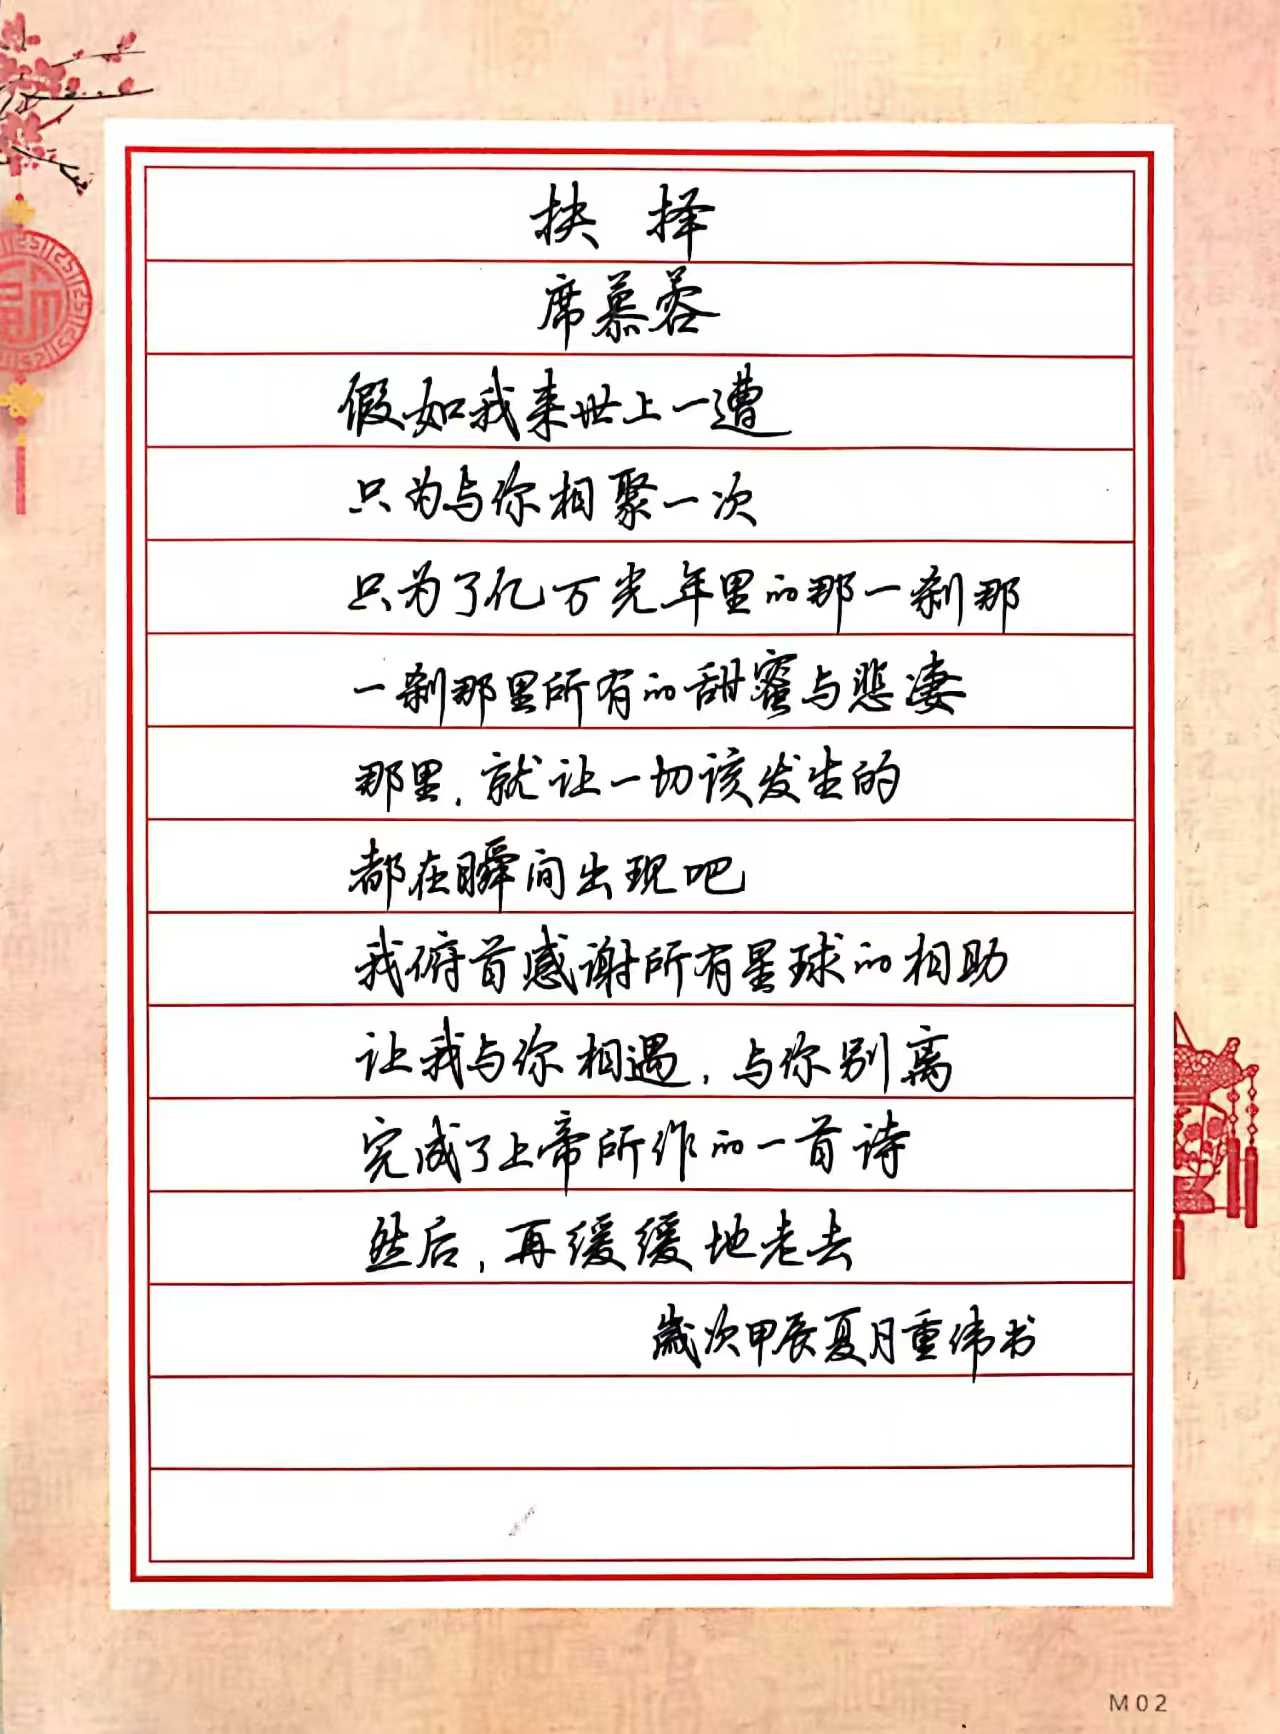 抉择
席慕蓉
假如我来世上一遭
只为与你相聚一次
只为了亿万光年里的那一刹那
一刹那里所有的甜蜜与悲凄
那里,就让一切该发生的
都在瞬间出现吧
我俯首感谢所有星球的相助
让我与你相遇,与你别离
完成了上帝所作的一首诗
然后,再缓缓地老去
岁次甲辰夏月重伟书
M02